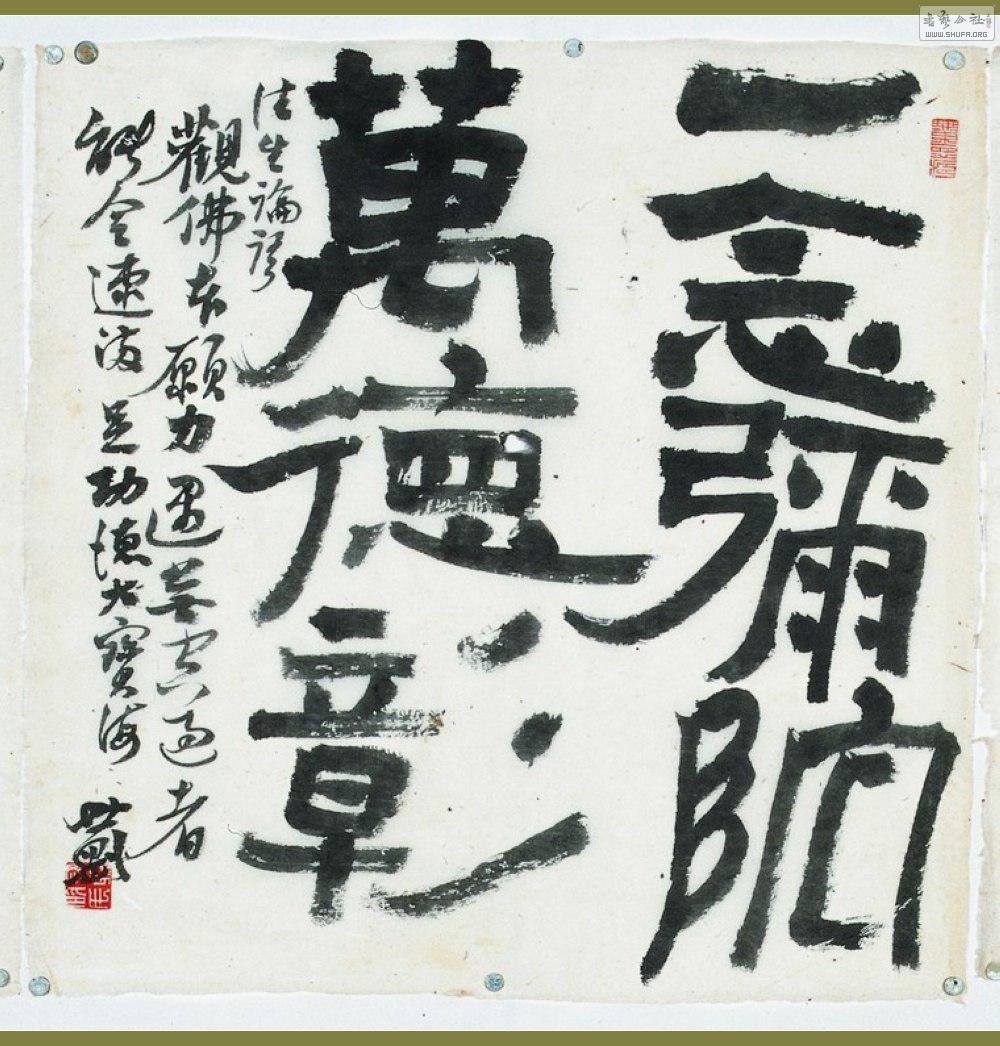 一念彌陀
萬德彰
往生論謗
觀佛本願力遇無空過者
能令速滿足功德大寶海
戴
書藝公社
WWW.SHUFA.ORG